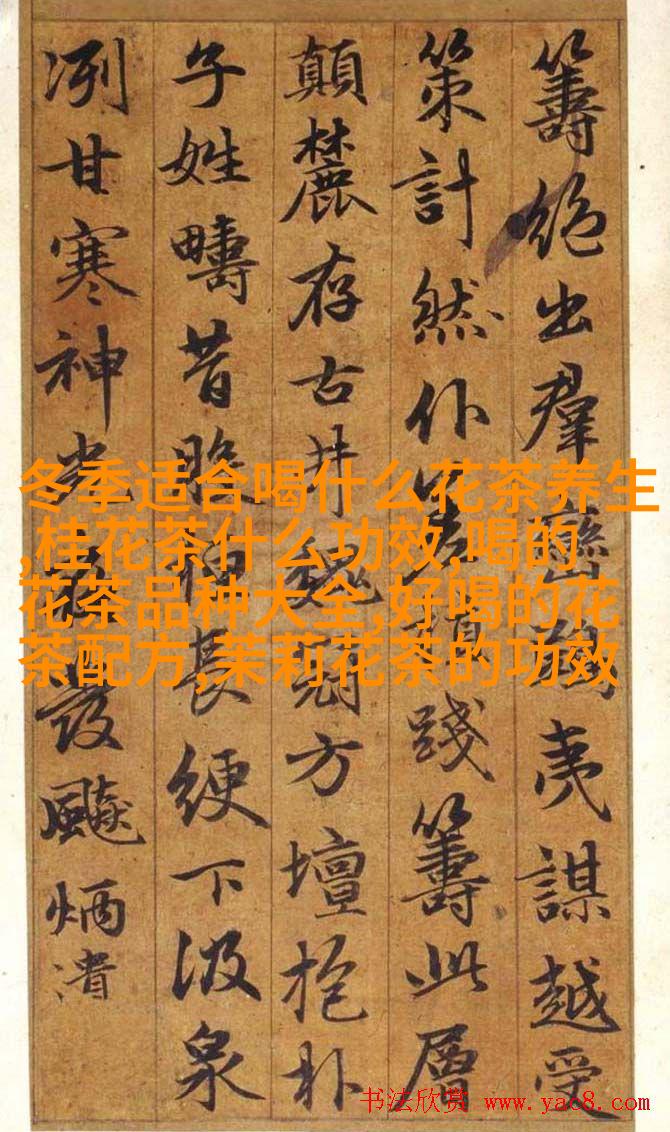 籌絕出羣夷謀越受
策計然踐籌此層
顛麓存古井方壇抱朴
子姓疇昔長綆下汲泉
冽甘寒神光發飈炳潰
冬季适合喝什么花茶养生
,桂花茶什么功效,喝的
花茶品种大全,好喝的花
茶配方,茉莉花茶的功效
书法欣赏 www.yac8.com